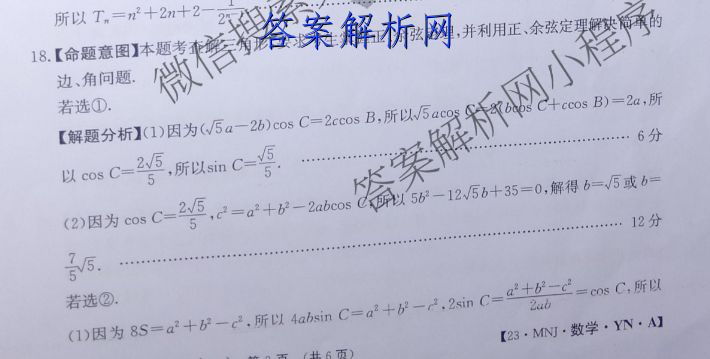 所以 Tₙ=n²+2n+2-
答案解析网
18.【命题意图】本题考查解三角形,要求 正、余弦定理,并利用正、余弦定理解决简单的
边、角问题.
若选①.
【解题分析】(1)因为(√5a-2b)cos C=2ccos B,所以√5acos C=2(bcos C+ccos B)=2a,所
以 cos C=2√5/5,所以sin C=√5/5. 6 分
(2)因为 cos C=2√5/5,c²=a²+b²-2abcos C,所以 5b²-12√5b+35=0,解得 b=√5或 b=
7/5√5. 12 分
若选②.
(1)因为 8S=a²+b²-c²,所以 4absin C=a²+b²-c²,2sin C=a²+b²-c²/2ab=cos C,所以
【23·MNJ·数学·YN·A】
(共6页)
微信搜索
答案解析网小程序